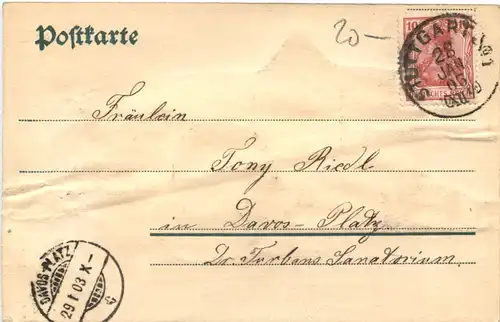 Postkarte
20 —
10 10
STUTTGART. No 1
28
JAN
03
Fräulein
Tony Riedl
in Davos-Platz
Dr. Turbans Sanatorium.
DAVOS-PLATZ
29 I 03 X-